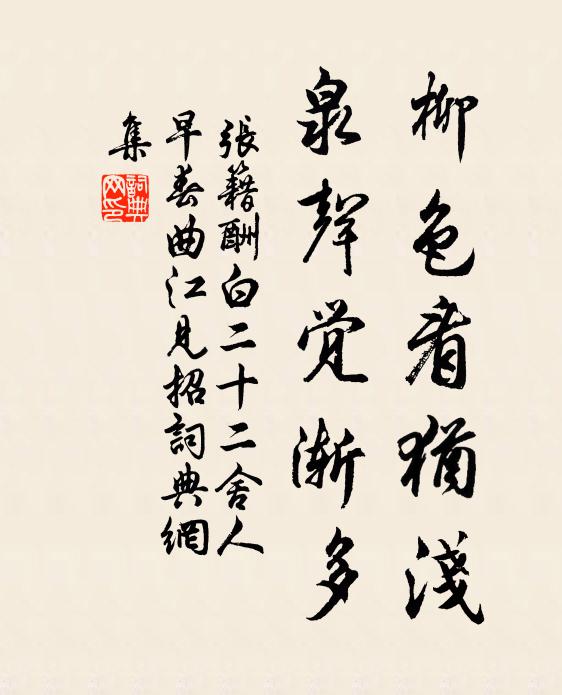 柳色看猶淺
泉聲覺漸多
張籍酬白二十二舍人
早春曲江見招詞典網
集
詞典
网印